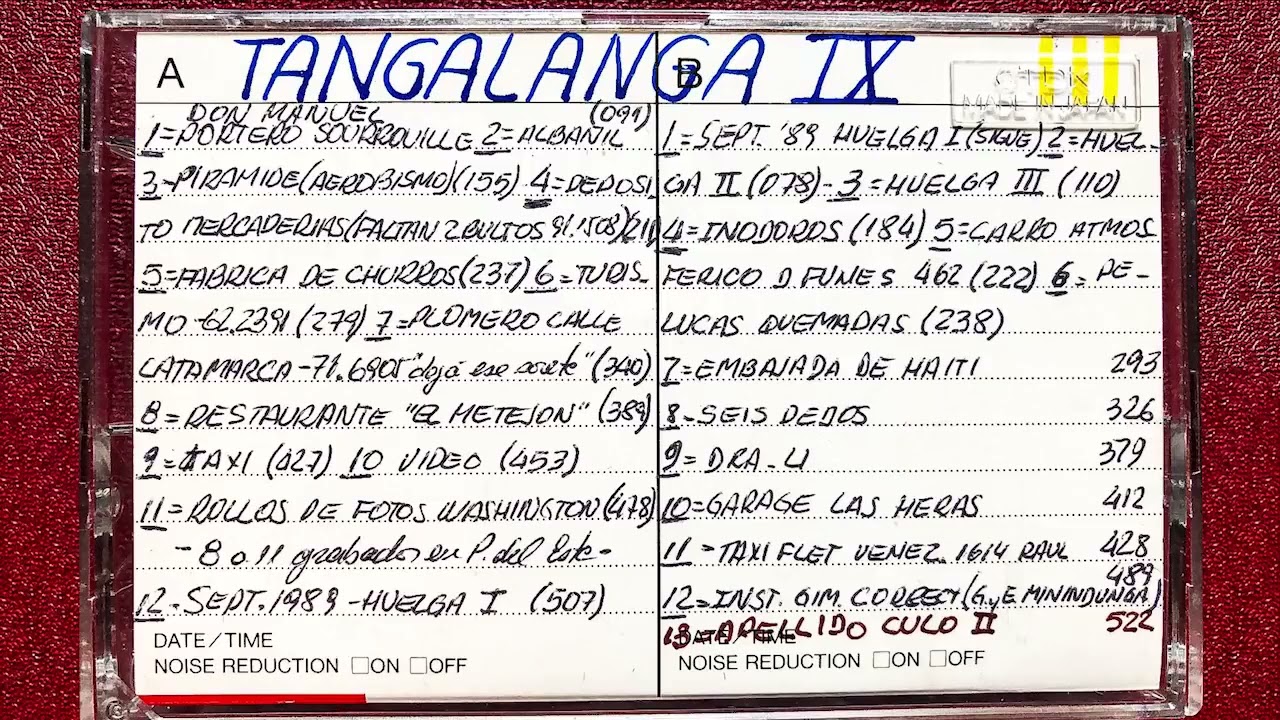 TANGALANGA IX
A
DON MANUEL (091)
1=PORTERO SOURROUILLE 2=ALBAÑIL
3-PIRAMIDE(AEROBISMO)(155) 4=DEPOSI
TO MERCADERIAS(FALTAN 2 BULTOS 91.1508)(211)
5=FABRICA DE CHURROS(237) 6=TURIS-
MO-62.2391(279) 7=PLOMERO CALLE
CATAMARCA-71.6905"dejá ese sorete"(340)
8=RESTAURANTE "EL METEJON" (389)
9=TAXI (427) 10 VIDEO (453)
11=ROLLOS DE FOTOS WASHINGTON(478)
-8 a 11 grabados en P. del Este-
12-SEPT.1989-HUELGA I (507)
DATE/TIME
NOISE REDUCTION □ON □OFF
B
MADE IN JAPAN
1=SEPT. '89 HUELGA I(SIGUE) 2=HUEL-
GA II(078)-3=HUELGA III(110)
4=INODOROS(184) 5=CARRO ATMOS
FERICO D FUNES 462(222) 6=PE-
LUCAS QUEMADAS(238)
7=EMBAJADA DE HAITI 293
8-SEIS DEDOS 326
9=DRA-LI 379
10=GARAGE LAS HERAS 412
11-TAXIFLET VENEZ. 1614 RAUL 428
489
12=INST. GIM. CORRECT(G.yE.MININDUNGA)
13=APELLIDO CULO II 522
DATE/TIME
NOISE REDUCTION □ON □OFF